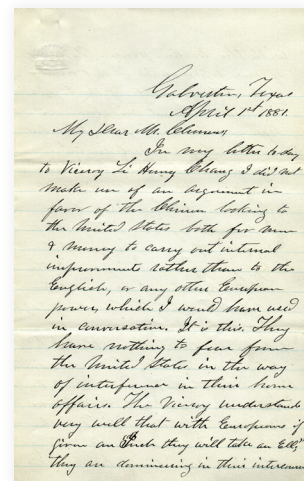 Galveston, Texas
April 1st 1881.
My Dear Mr. Clemens,
In my letter to day
to Viceroy Li Hung Chang I did not
make use of an argument in
favor of the Chinese looking to
the United States both for men
& money to carry out internal
improvements rather than to the
English, or any other European
power, which I would have used
in conversation. It is this. They
have nothing to fear from
the United States in the way
of interference in their home
affairs. The Viceroy understands
very well that with Europeans if
given an Inch they will take an Ell,
they are domineering in their intercourse